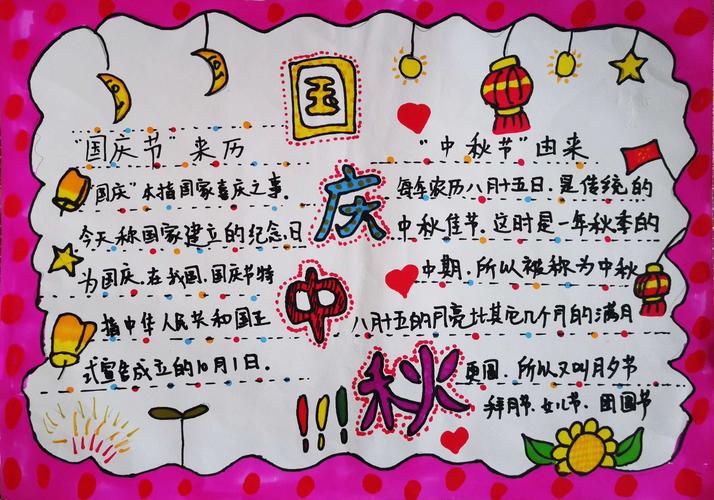 国庆中秋
"国庆节"来历
"国庆"本指国家喜庆之事.
今天称国家建立的纪念.日
为国庆.在我国.国庆节特
指中华人民共和国正
式宣告成立的10月1日.
"中秋节"由来
每年农历八月十五日.是传统的
中秋佳节.这时是一年秋季的
中期.所以被称为中秋
八月十五的月亮比其它几个月的满月
更圆.所以又叫月夕节
拜月节.女儿节.团圆节
!!!